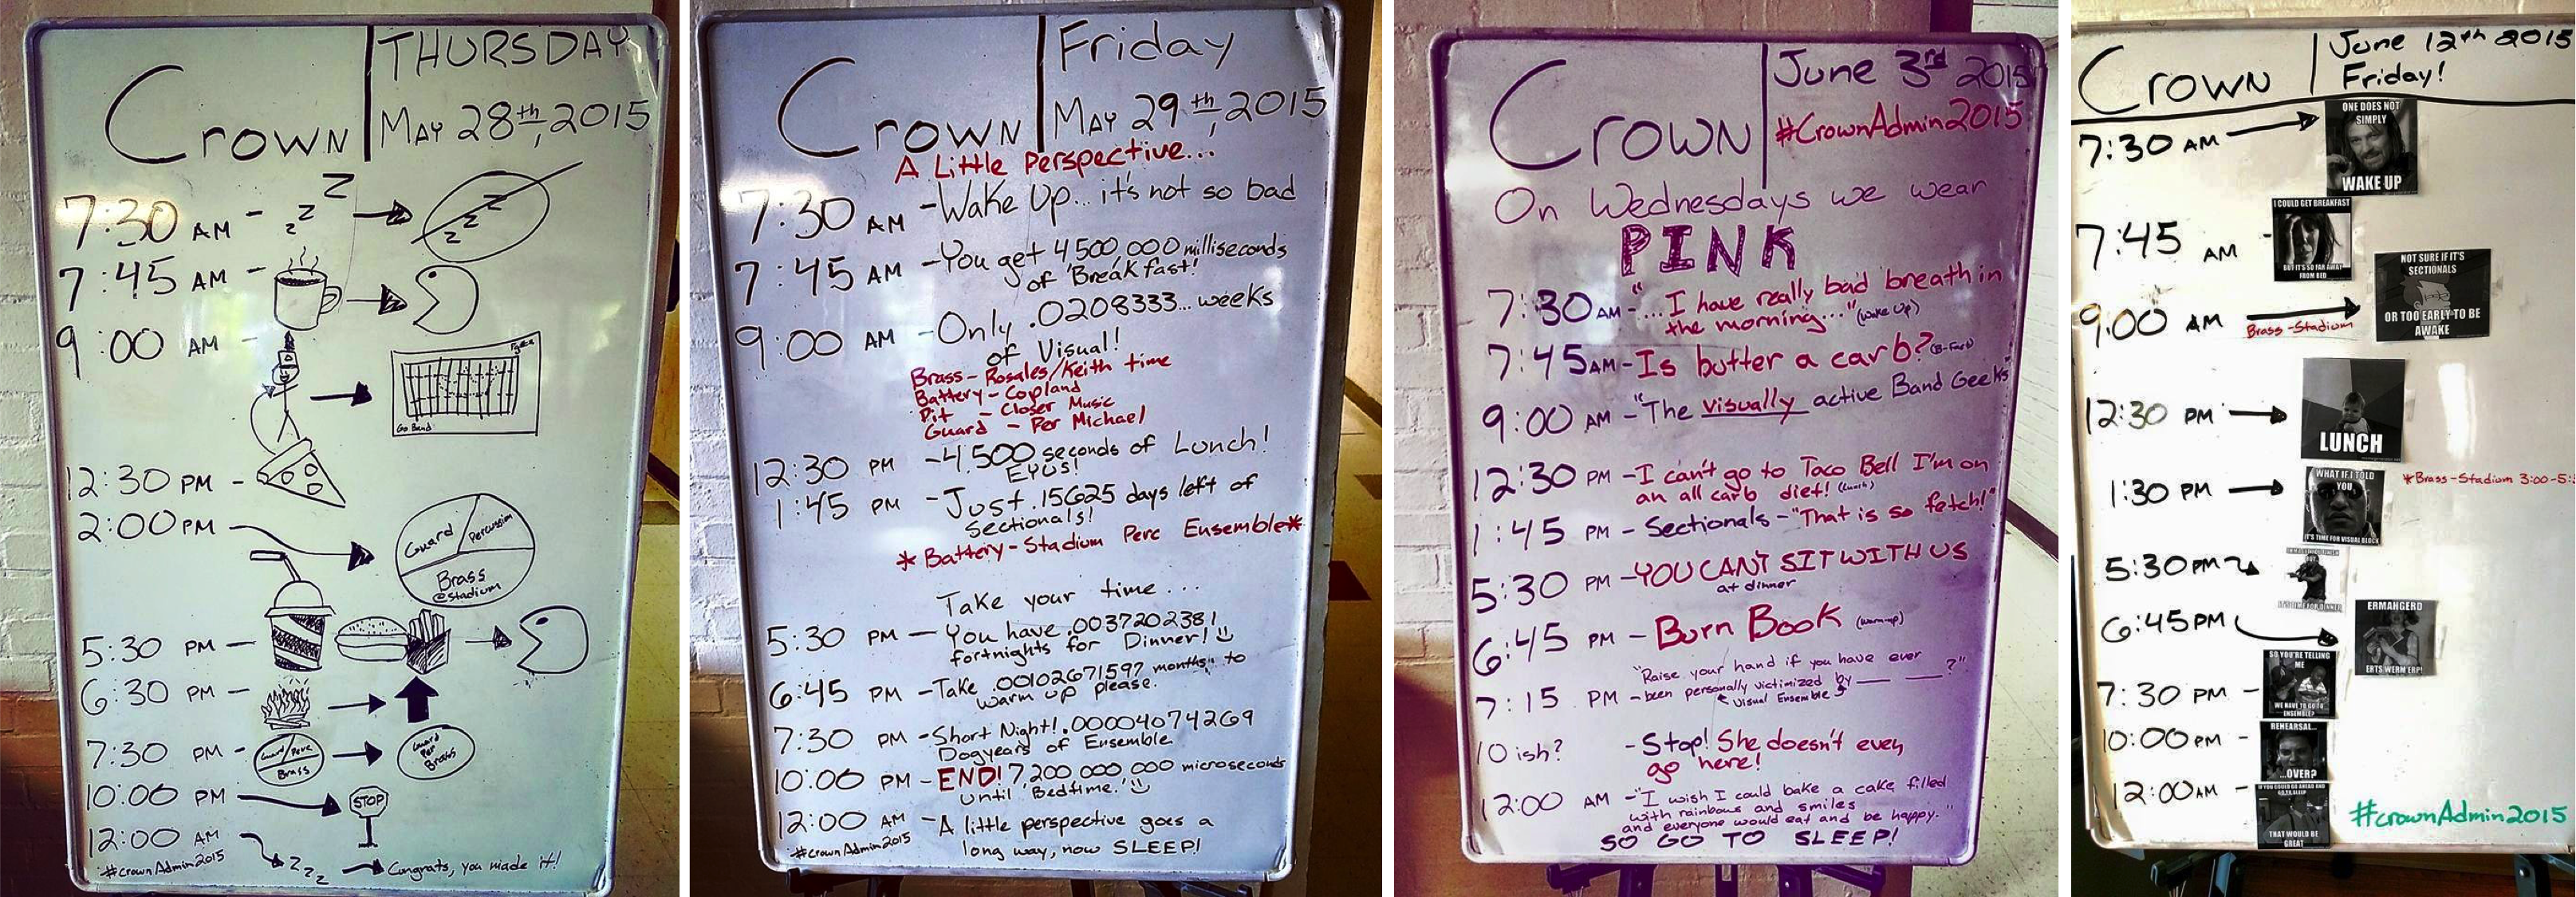 Crown
THURSDAY
MAY 28th, 2015
7:30 AM - z z z
z z z
7:45 AM -
9:00 AM -
Go Band
12:30 PM -
2:00 PM
Guard
Percussion
Brass
@stadium
5:30 PM -
6:30 PM -
7:30 PM -
Guard/Perc
Brass
Guard
Per
Brass
10:00 PM
STOP
12:00 AM
z z z
Congrats, you made it!
#crownAdmin2015
Crown
Friday
MAY 29th, 2015
A Little Perspective...
7:30 AM - Wake Up... it's not so bad
7:45 AM - You get 4500,000 milliseconds
of 'Breakfast!'
9:00 AM - Only .0208333... weeks
of Visual!
Brass - Rosales/Keith time
Battery - Copland
Pit - Closer Music
Guard - Per Michael
12:30 PM - 4,500 seconds of Lunch!
EYUS!
1:45 PM - Just .15625 days left of
sectionals!
* Battery - Stadium Perc Ensemble*
Take your time...
5:30 PM - You have .0037202381
fortnights for Dinner!
6:45 PM - Take .00102671597 "months" to
warm up please.
7:30 PM - Short Night! .00004074269
Dogyears of Ensemble
10:00 PM - END! 7,200,000,000 microseconds
until 'Bedtime.'
12:00 AM - A little perspective goes a
long way, now SLEEP!
#crownAdmin2015
Crown
June 3rd 2015
#CrownAdmin2015
On Wednesdays we wear
PINK
7:30 AM - "... I have really bad breath in
the morning..." (Wake Up)
7:45 AM - Is butter a carb? (B-Fast)
9:00 AM - "The Visually active Band Geeks"
12:30 PM - I can't go to Taco Bell I'm on
an all carb diet! (Lunch)
1:45 PM - Sectionals - "That is so fetch!"
5:30 PM - YOU CAN'T SIT WITH US
at dinner
6:45 PM - Burn Book (warm-up)
"Raise your hand if you have ever
7:15 PM - been personally victimized by ___ ___?"
Visual Ensemble
10 ish? - Stop! She doesn't even
go here!
12:00 AM - "I wish I could bake a cake filled
with rainbows and smiles
and everyone would eat and be happy."
SO GO TO SLEEP!
Crown
June 12th 2015
Friday!
7:30 AM
ONE DOES NOT
SIMPLY
WAKE UP
7:45 AM -
I COULD GET BREAKFAST
BUT IT'S SO FAR AWAY
FROM BED
9:00 AM
Brass - Stadium
NOT SURE IF IT'S
SECTIONALS
OR TOO EARLY TO BE
AWAKE
12:30 PM
LUNCH
1:30 PM
WHAT IF I TOLD
YOU
IT'S TIME FOR VISUAL BLOCK
*Brass - Stadium 3:00-5:
5:30 PM
IT'S TIME FOR DINNER
6:45 PM
ERMAHGERD
ERTS WERM ERP!
7:30 PM -
SO YOU'RE TELLING
ME
WE HAVE TO GO TO
ENSEMBLE?
10:00 PM -
REHEARSAL...
...OVER?
12:00 AM -
IF YOU COULD GO AHEAD AND
GO TO SLEEP
THAT WOULD BE
GREAT
#crownAdmin2015